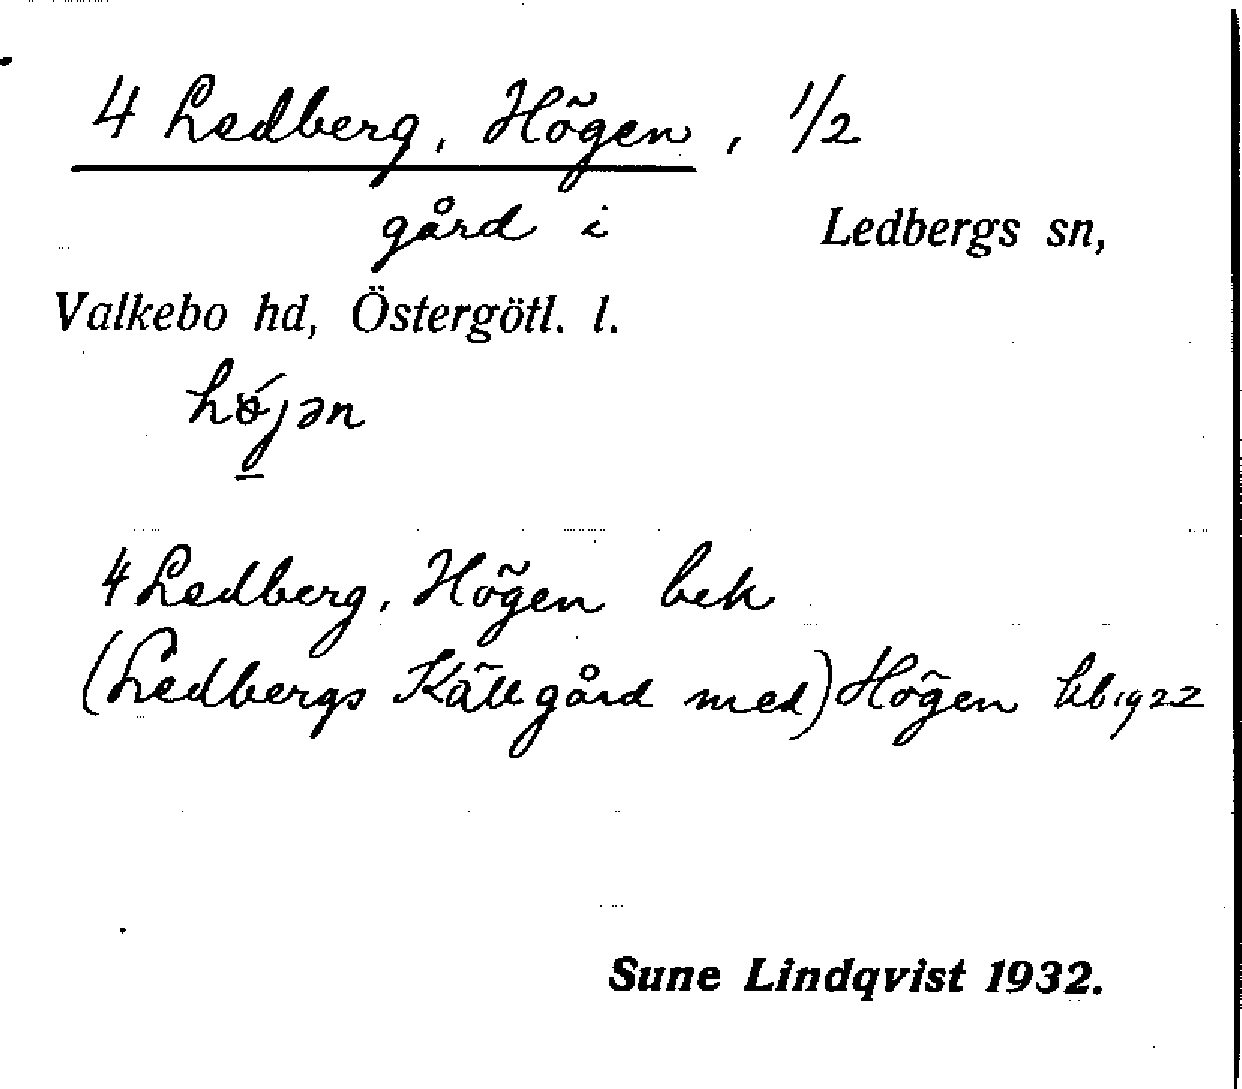 4 Ledberg, Högen, 1/2
gård i Ledbergs sn,
Valkebo hd, Östergötl. l.
hǿjən
4 Ledberg, Högen bek
(Ledbergs Källgård med) Högen kb 1922
Sune Lindqvist 1932.